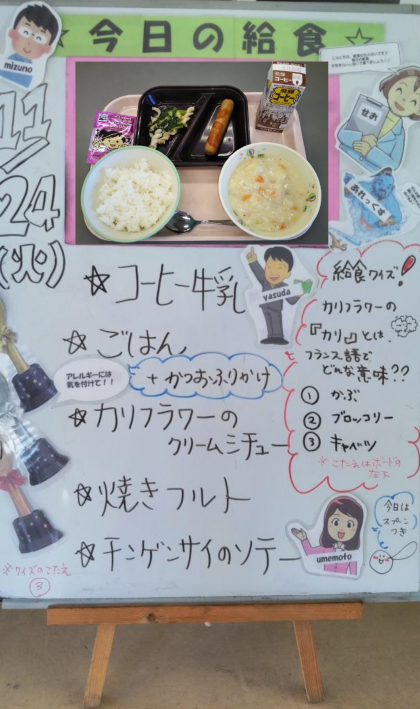 ☆今日の給食☆
mizuno
11/24
(火)
せお
あれっくす
yasuda
☆コーヒー牛乳
☆ごはん
+かつおふりかけ
アレルギーには
気を付けて!!
☆カリフラワーの
クリームシチュー
☆焼きフルト
☆チンゲンサイのソテー
給食クイズ!
カリフラワーの
『カリ』とは、
フランス語で
どんな意味??
① かぶ
② ブロッコリー
③ キャベツ
※こたえはボードの
左下
umemoto
今日は
スプーン
つき
※クイズのこたえ
③